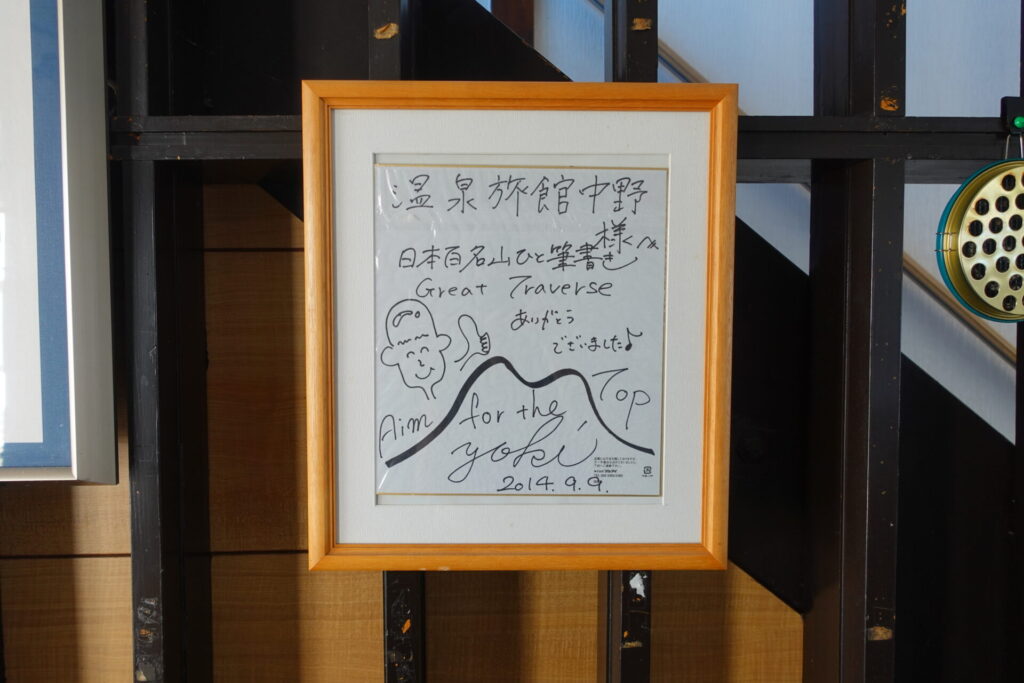 温泉旅館中野
様へ
日本百名山ひと筆書き
Great Traverse
ありがとう
ございました♪
Aim for the Top
yoki
2014.9.9.